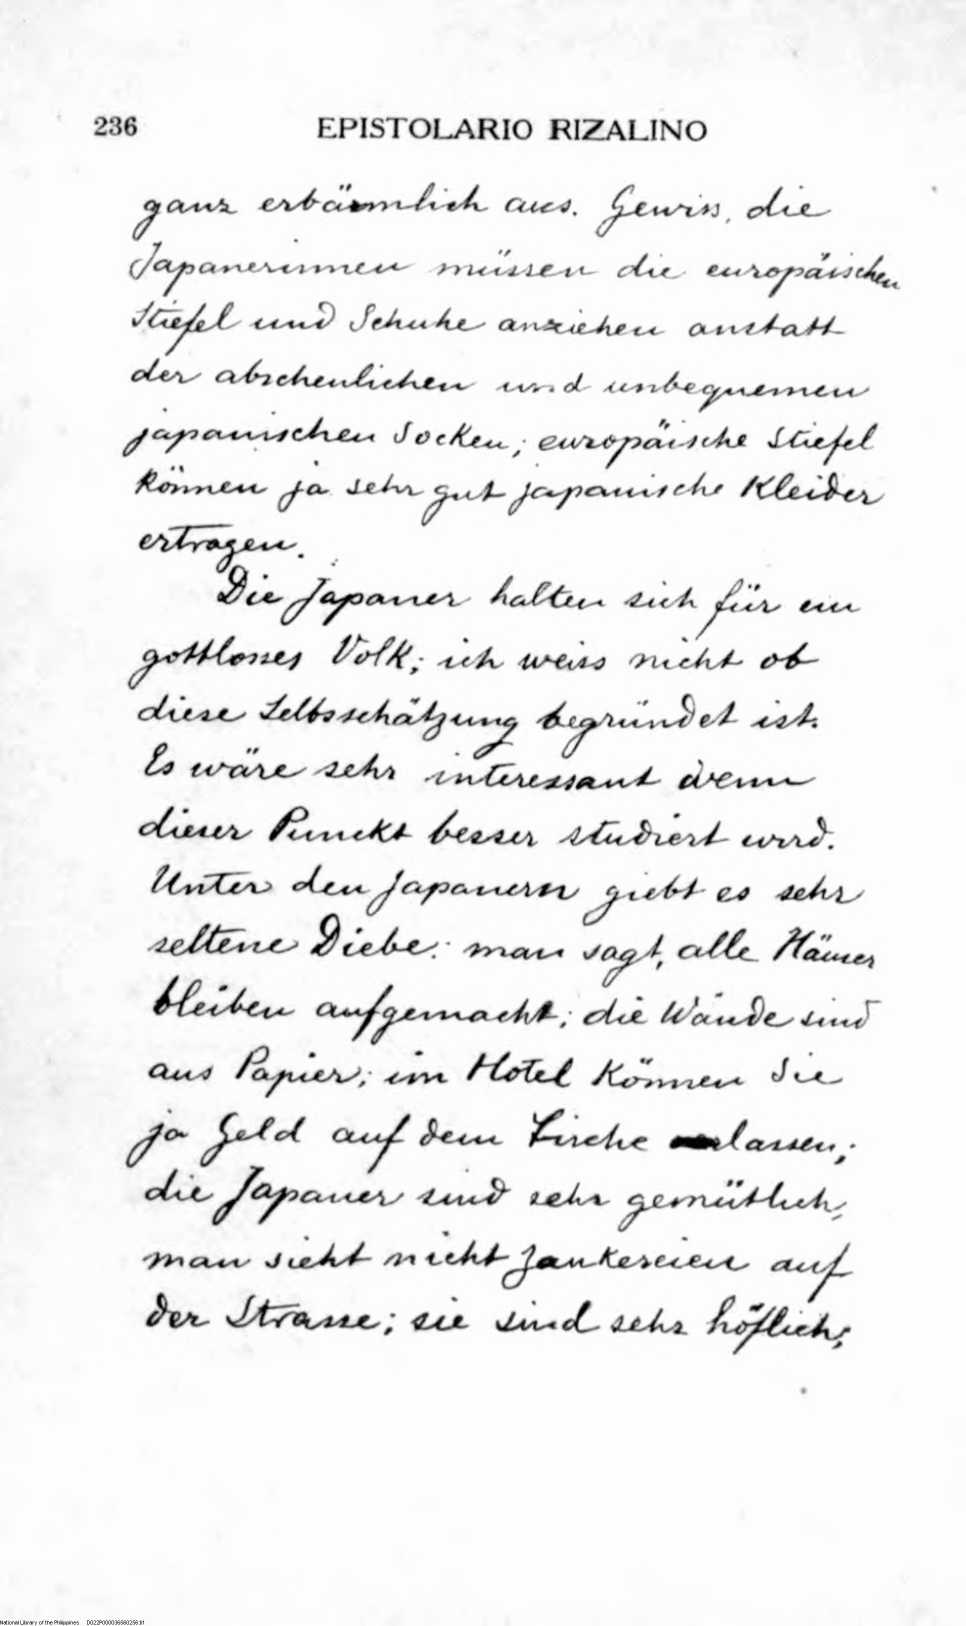 236 EPISTOLARIO RIZALINO
ganz erbärmlich aus. Gewiss, die
Japanerinnen müssen die europäischen
Stiefel und Schuhe anziehen anstatt
der abscheulichen und unbequemen
japanischen Socken; europäische Stiefel
können ja sehr gut japanische Kleider
ertragen.
Die Japaner halten sich für ein
gottlosses Volk; ich weiss nicht ob
diese Selbsschätzung begründet ist.
Es wäre sehr interessant wenn
dieser Punckt besser studiert wird.
Unter den Japanern giebt es sehr
seltene Diebe: man sagt, alle Häuser
bleiben aufgemacht; die Wände sind
aus Papier; im Hotel können Sie
ja Geld auf dem Tische lassen;
die Japaner sind sehr gemütlich,
man sieht nicht Zankereien auf
der Strasse; sie sind sehr höflich;
National Library of the Philippines